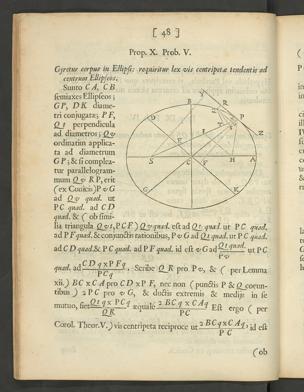 [ 48 ]
Prop. X. Prob. V.
Gyretur corpus in Ellipsi: requiritur lex vis centripetæ tendentis ad
centrum Ellipseos.
Sunto CA, CB
semiaxes Ellipseos;
GP, DK diame-
tri conjugatæ; PF,
Qt perpendicula
ad diametros; Qv
ordinatim applica-
ta ad diametrum
GP; & si complea-
tur parallelogram-
mum QvRP, erit
(ex Conicis) PvG
ad Qv quad. ut
PC quad. ad CD
quad. & (ob simi-
lia triangula Qvt, PCF) Qv quad. est ad Qt quad. ut PC quad.
ad PF quad. & conjunctis rationibus, PvG ad Qt quad. ut PC quad.
ad CD quad. & PC quad. ad PF quad. id est vG ad Qt quad./Pv ut PC
quad. ad CDq x PFq/PCq. Scribe QR pro Pv, & (per Lemma
xii.) BC x CA pro CD x PF, nec non (punctis P & Q coeun-
tibus) 2PC pro vG, & ductis extremis & mediis in se
mutuo, fiet Qtq x PCq/QR æquale 2BCq x CAq/PC. Est ergo (per
Corol. Theor. V.) vis centripeta reciproce ut 2BCq x CAq/PC; id est
(ob
B
R
P
Z
D
S
C
H
A
G
K
F